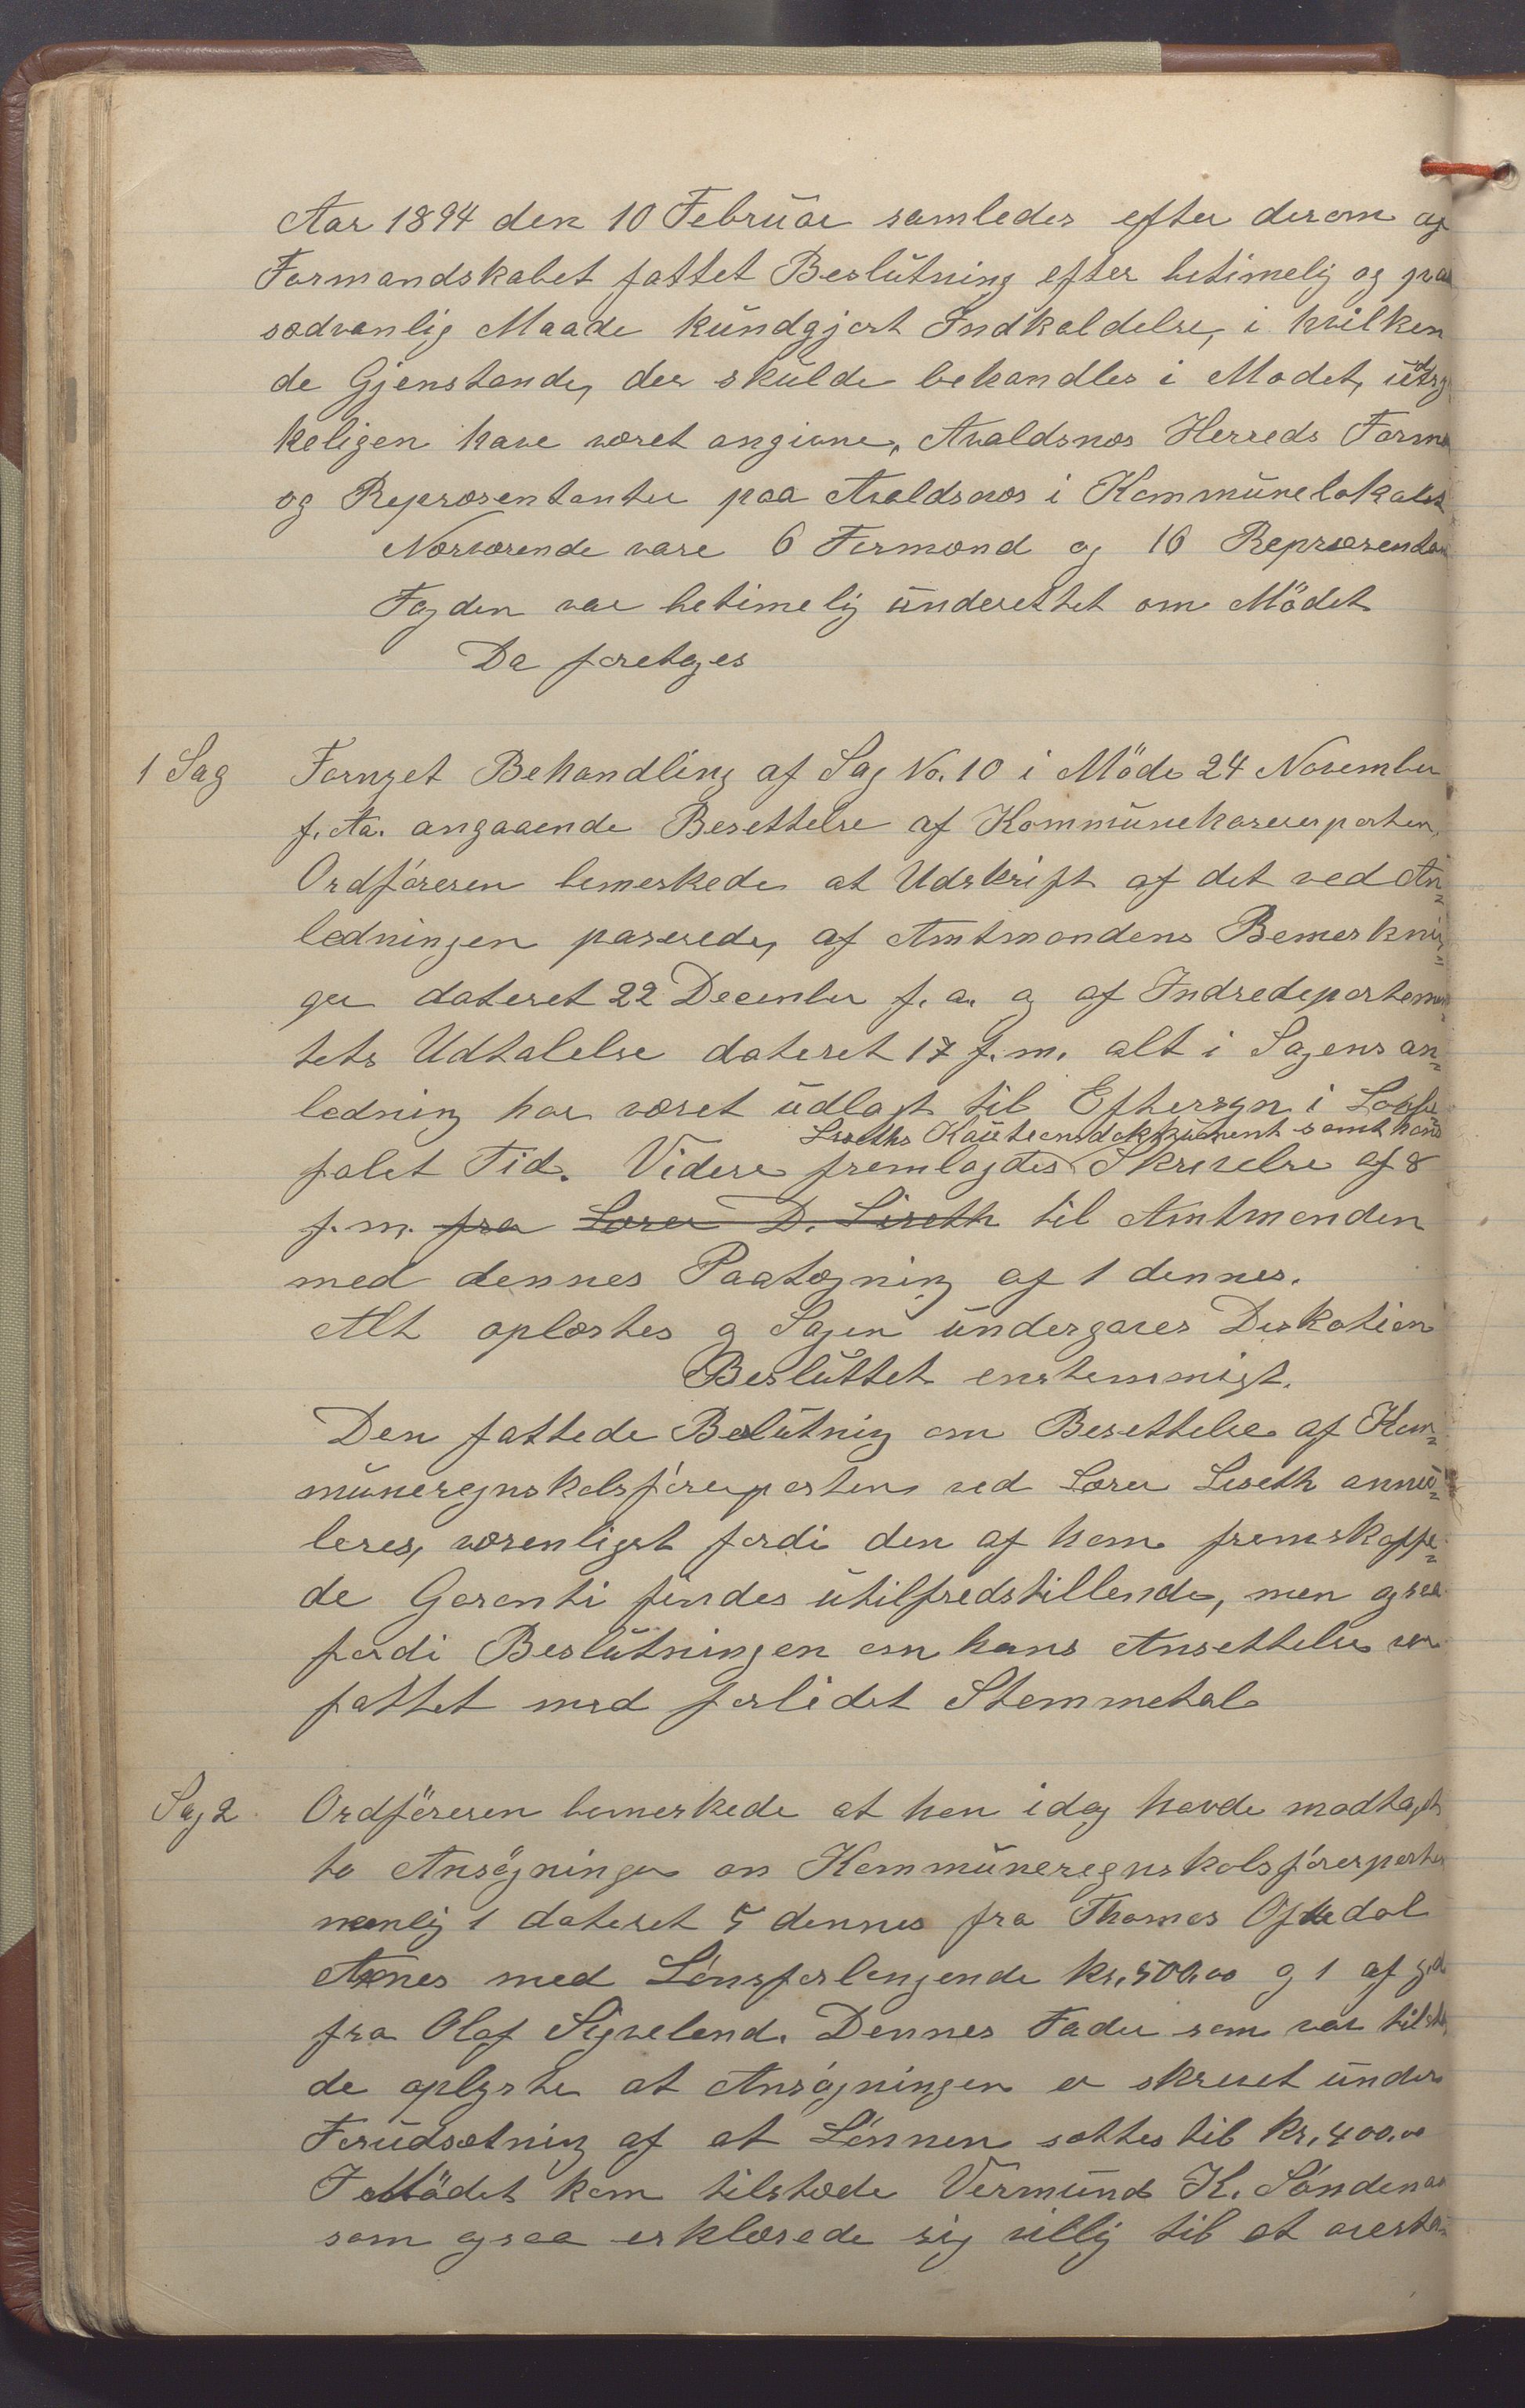 Aar 1894 den 10 Februar samledes efter derom af
Formandskabet fattet Beslutning efter betimelig og paa
sædvanlig Maade kundgjort Indkaldelse, i hvilken
de Gjenstande, der skulde behandles i Mødet, udtryk
keligen have været angivne, Avaldsnes Herreds Form
og Repræsentanter paa Avaldsnes i Kommunelokalet
Nærværende vare 6 Formænd og 16 Repræsentan
Fogden var betimelig underettet om Mödet
Da foretoges
1 Sag Fornyet Behandling af Sag No. 10 i Möde 24 November
f. Aa. angaaende Besettelse af Kommunekasererposten.
Ordføreren bemerkede at Udskrift af det ved An-
ledningen passerede, af Amtmandens Bemerknin-
ger dateret 22 December f. a. og af Indredepartemen-
tets Udtalelse dateret 17 f. m. alt i Sagens an-
ledning har været udlagt til Eftersyn i Lovbe-
Liseths Kautionsdokkument samt hans
falet Tid. Videre fremlagdes Skrivelse af 8
f. m. fra Lærer D. Liseth til Amtmanden
med dennes Paategning af 1 dennes.
Alt oplæstes og Sagen undergaves Diskotion
Besluttet enstemmigt.
Den fattede Beslutning om Besettelse af Kom-
muneregnskabsførerposten ved Lærer Liseth annu-
leres, væsenligst fordi den af ham fremskaffe-
de Garanti findes utilfredstillende, men ogsaa
fordi Beslutningen om hans Ansettelse var
fattet med forlidet Stemmetal
Sag 2 Ordföreren bemerkede at han idag havde modtaget
to Ansøgninger om Kommuneregnskabsførerposten
nemlig 1 dateret 5 dennes fra Thomas Oftedal
med Lønsforlangende kr. 500,00 og 1 af g. d.
fra Olaf Sigveland. Dennes Fader som var tilste
de oplyste at Ansøgningen er skrevet under
Forudsætning af at Lønnen sættes til kr. 400.00
I Mödet kom tilstede Vermund K. Søndenaa
som ogsaa erklærede sig villig til at overta-